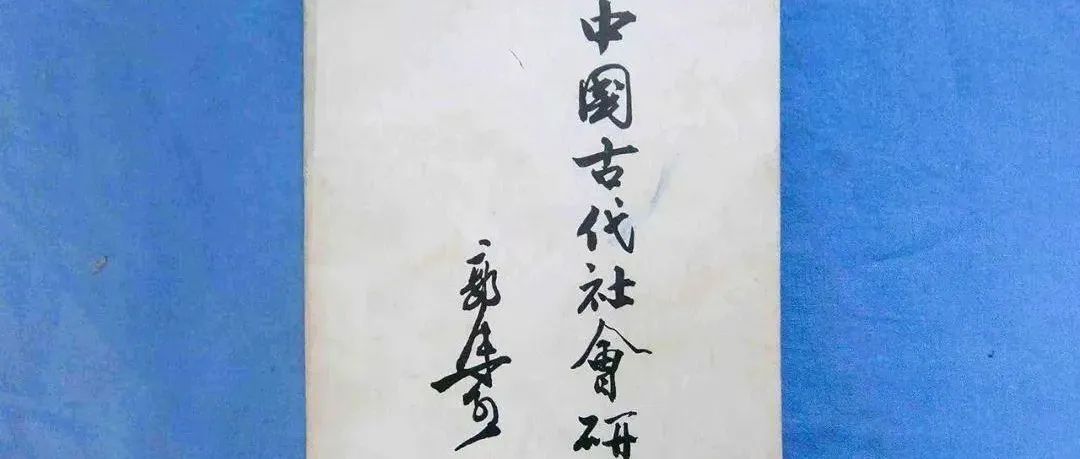 中國古代社會研
郭沫若